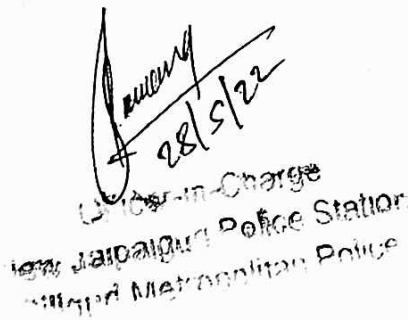 28/5/22
Officer-in-Charge
New Jalpaiguri Police Station
Siliguri Metropolitan Police